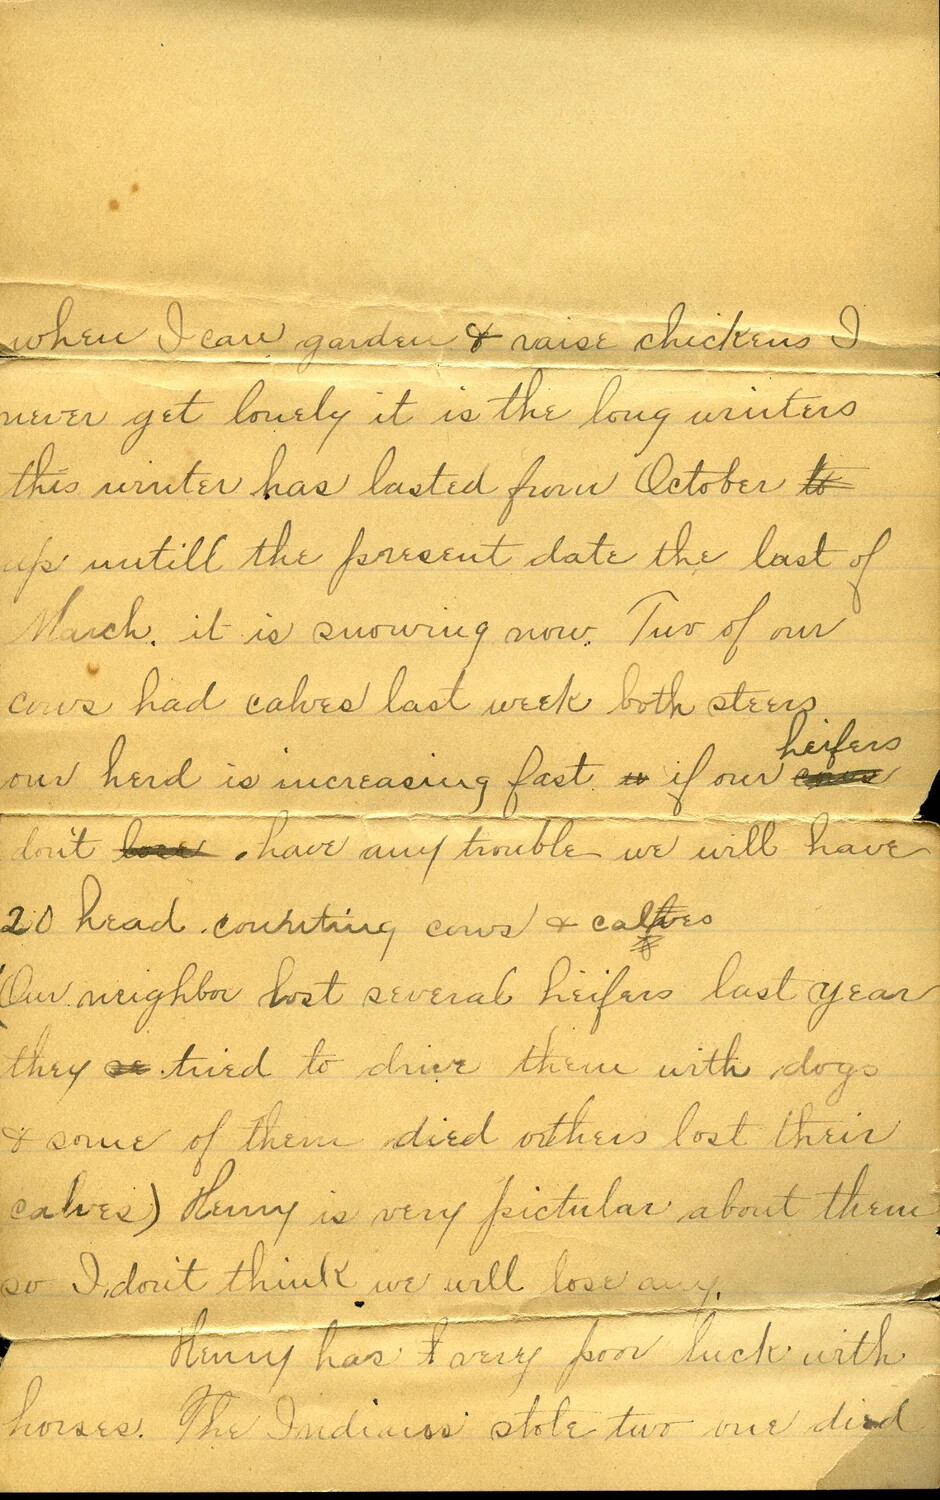 when I can garden & raise chickens I
never get lonely it is the long winters
this winter has lasted from October to
up untill the present date the last of
March. it is snowing now. Two of our
cows had calves last week both steers
heifers
our herd is increasing fast if our cows
don't lose have any trouble we will have
20 head counting cows & calves
(Our neighbor lost several heifers last year
they se tried to drive them with dogs
& some of them died others lost their
calves) Henry is very pictular about them
so I don't think we will lose any.
Henry has very poor luck with
horses. The Indians stole two one died